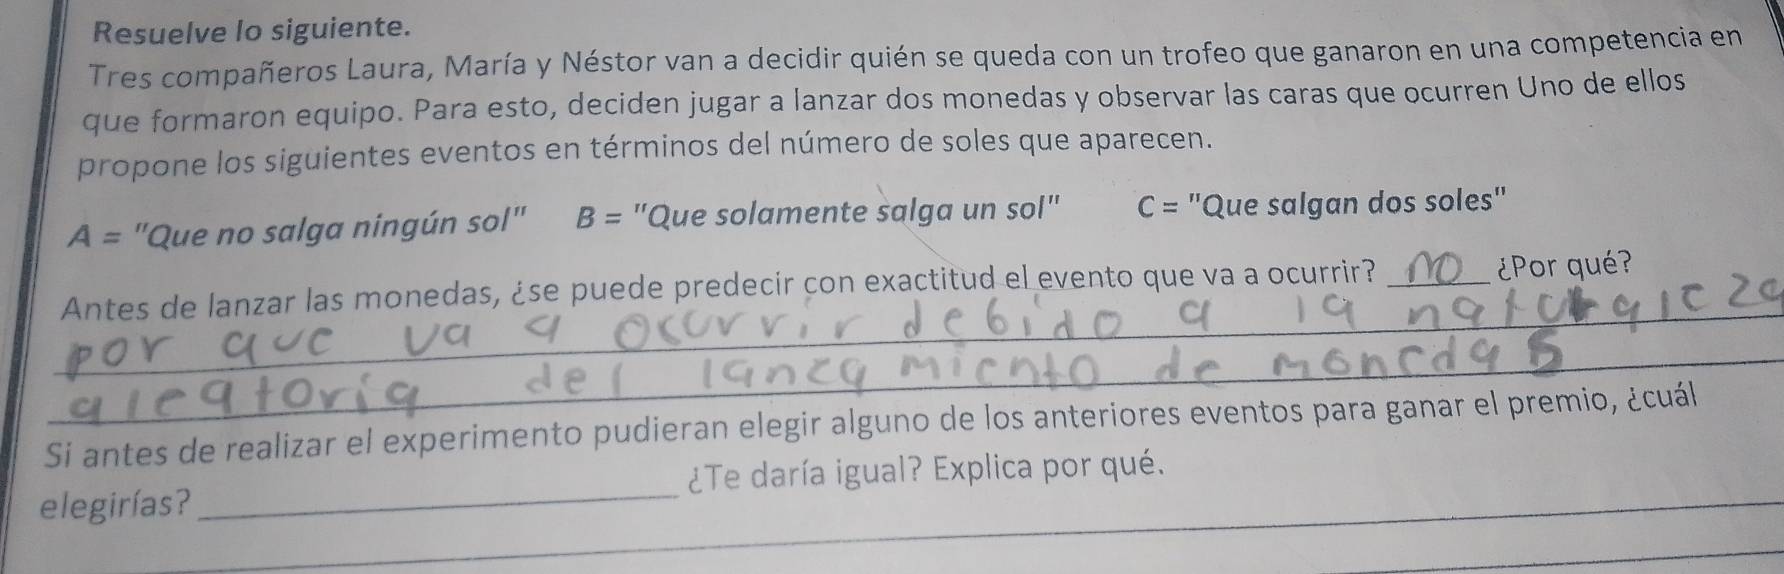 Resuelve lo siguiente.
Tres compañeros Laura, María y Néstor van a decidir quién se queda con un trofeo que ganaron en una competencia en
que formaron equipo. Para esto, deciden jugar a lanzar dos monedas y observar las caras que ocurren Uno de ellos
propone los siguientes eventos en términos del número de soles que aparecen.
A = "Que no salga ningún sol" B = "Que solamente salga un sol" C = "Que salgan dos soles"
Antes de lanzar las monedas, ¿se puede predecir con exactitud el evento que va a ocurrir? no ¿Por qué?
por que va a ocurrir debido a la naturaleza
aleatoria del lanzamiento de monedas
Si antes de realizar el experimento pudieran elegir alguno de los anteriores eventos para ganar el premio, ¿cuál
elegirías? ¿Te daría igual? Explica por qué.